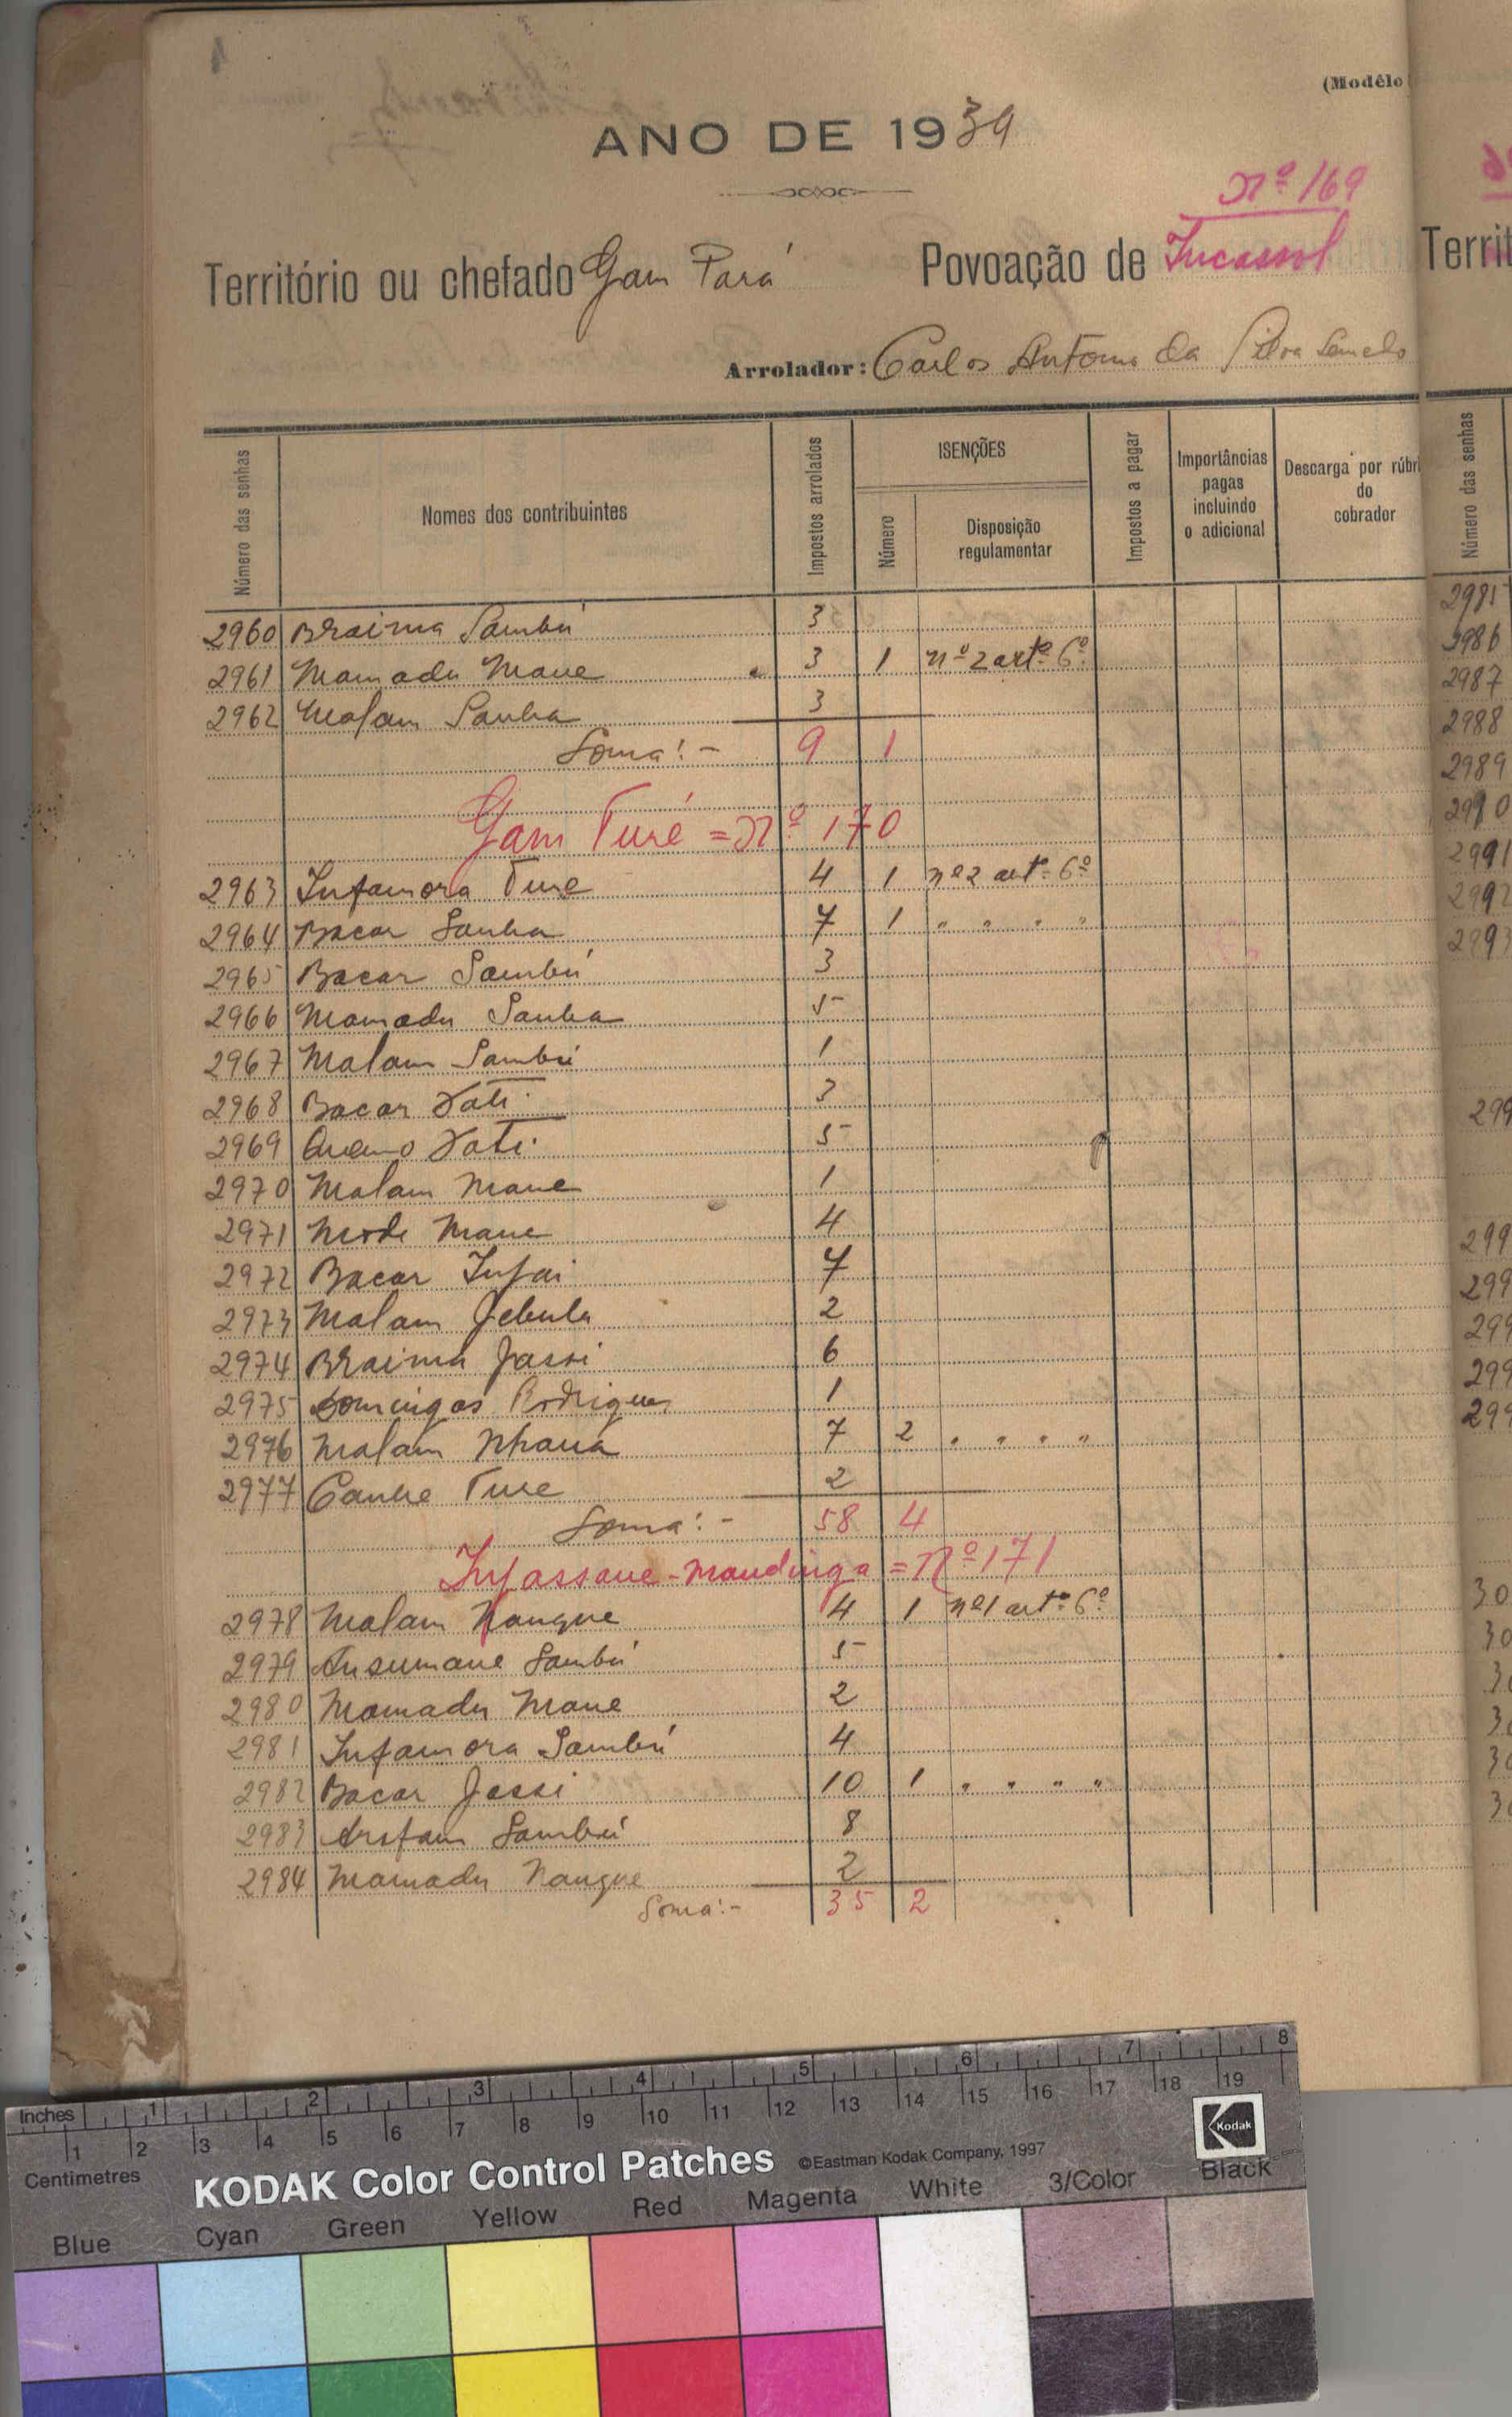 (Modêlo
ANO DE 1939
Nº 169
Território ou chefado Gam Pará Povoação de Incassol
Arrolador: Carlos Antonio da Silva
Número das senhas
Nomes dos contribuintes
Impostos arrolados
ISENÇÕES
Número
Disposição regulamentar
Impostos a pagar
Importâncias pagas incluindo o adicional
Descarga por rúbri
do
cobrador
2960 Braima Sambú 3
2961 Mamadu Mane 3 1 nº 2 artº 6º
2962 Malam Sanha 3
Soma:- 9 1
Gam Turé = Nº 170
2963 Infamora Ture 4 1 nº 2 artº 6º
2964 Bacar Sanha 7 1 " " " "
2965 Bacar Sambú 3
2966 Mamadu Sanha 5
2967 Malam Sambú 1
2968 Bacar Dati 3
2969 Dati 5
2970 Malam Mane 1
2971 Mode Mane 4
2972 Bacar Infai 7
2973 Malam Jebula 2
2974 Braima Jassi 6
2975 Domingos Rodrigues 1
2976 Malam Nhaná 7 2 " " " "
2977 Canhe Ture 2
Soma:- 58 4
Infassane-Mandinga = Nº 171
2978 Malam Nangue 4 1 nº 1 artº 6º
2979 Ansumane Sambú 5
2980 Mamadu Mane 2
2981 Infamora Sambú 4
2982 Bacar Jassi 10 1 " " " "
2983 Arafam Sambú 8
2984 Mamadu Nangue 2
Soma:- 35 2
Territ
Número das senhas
2985
2986
2987
2988
2989
2990
2991
2992
2993
299
299
299
299
299
299
30
30
30
30
30
30
Inches 1 2 3 4 5 6 7 8
1 2 3 4 5 6 7 8 9 10 11 12 13 14 15 16 17 18 19
Centimetres
KODAK Color Control Patches ©Eastman Kodak Company, 1997
Kodak
Blue Cyan Green Yellow Red Magenta White 3/Color Black